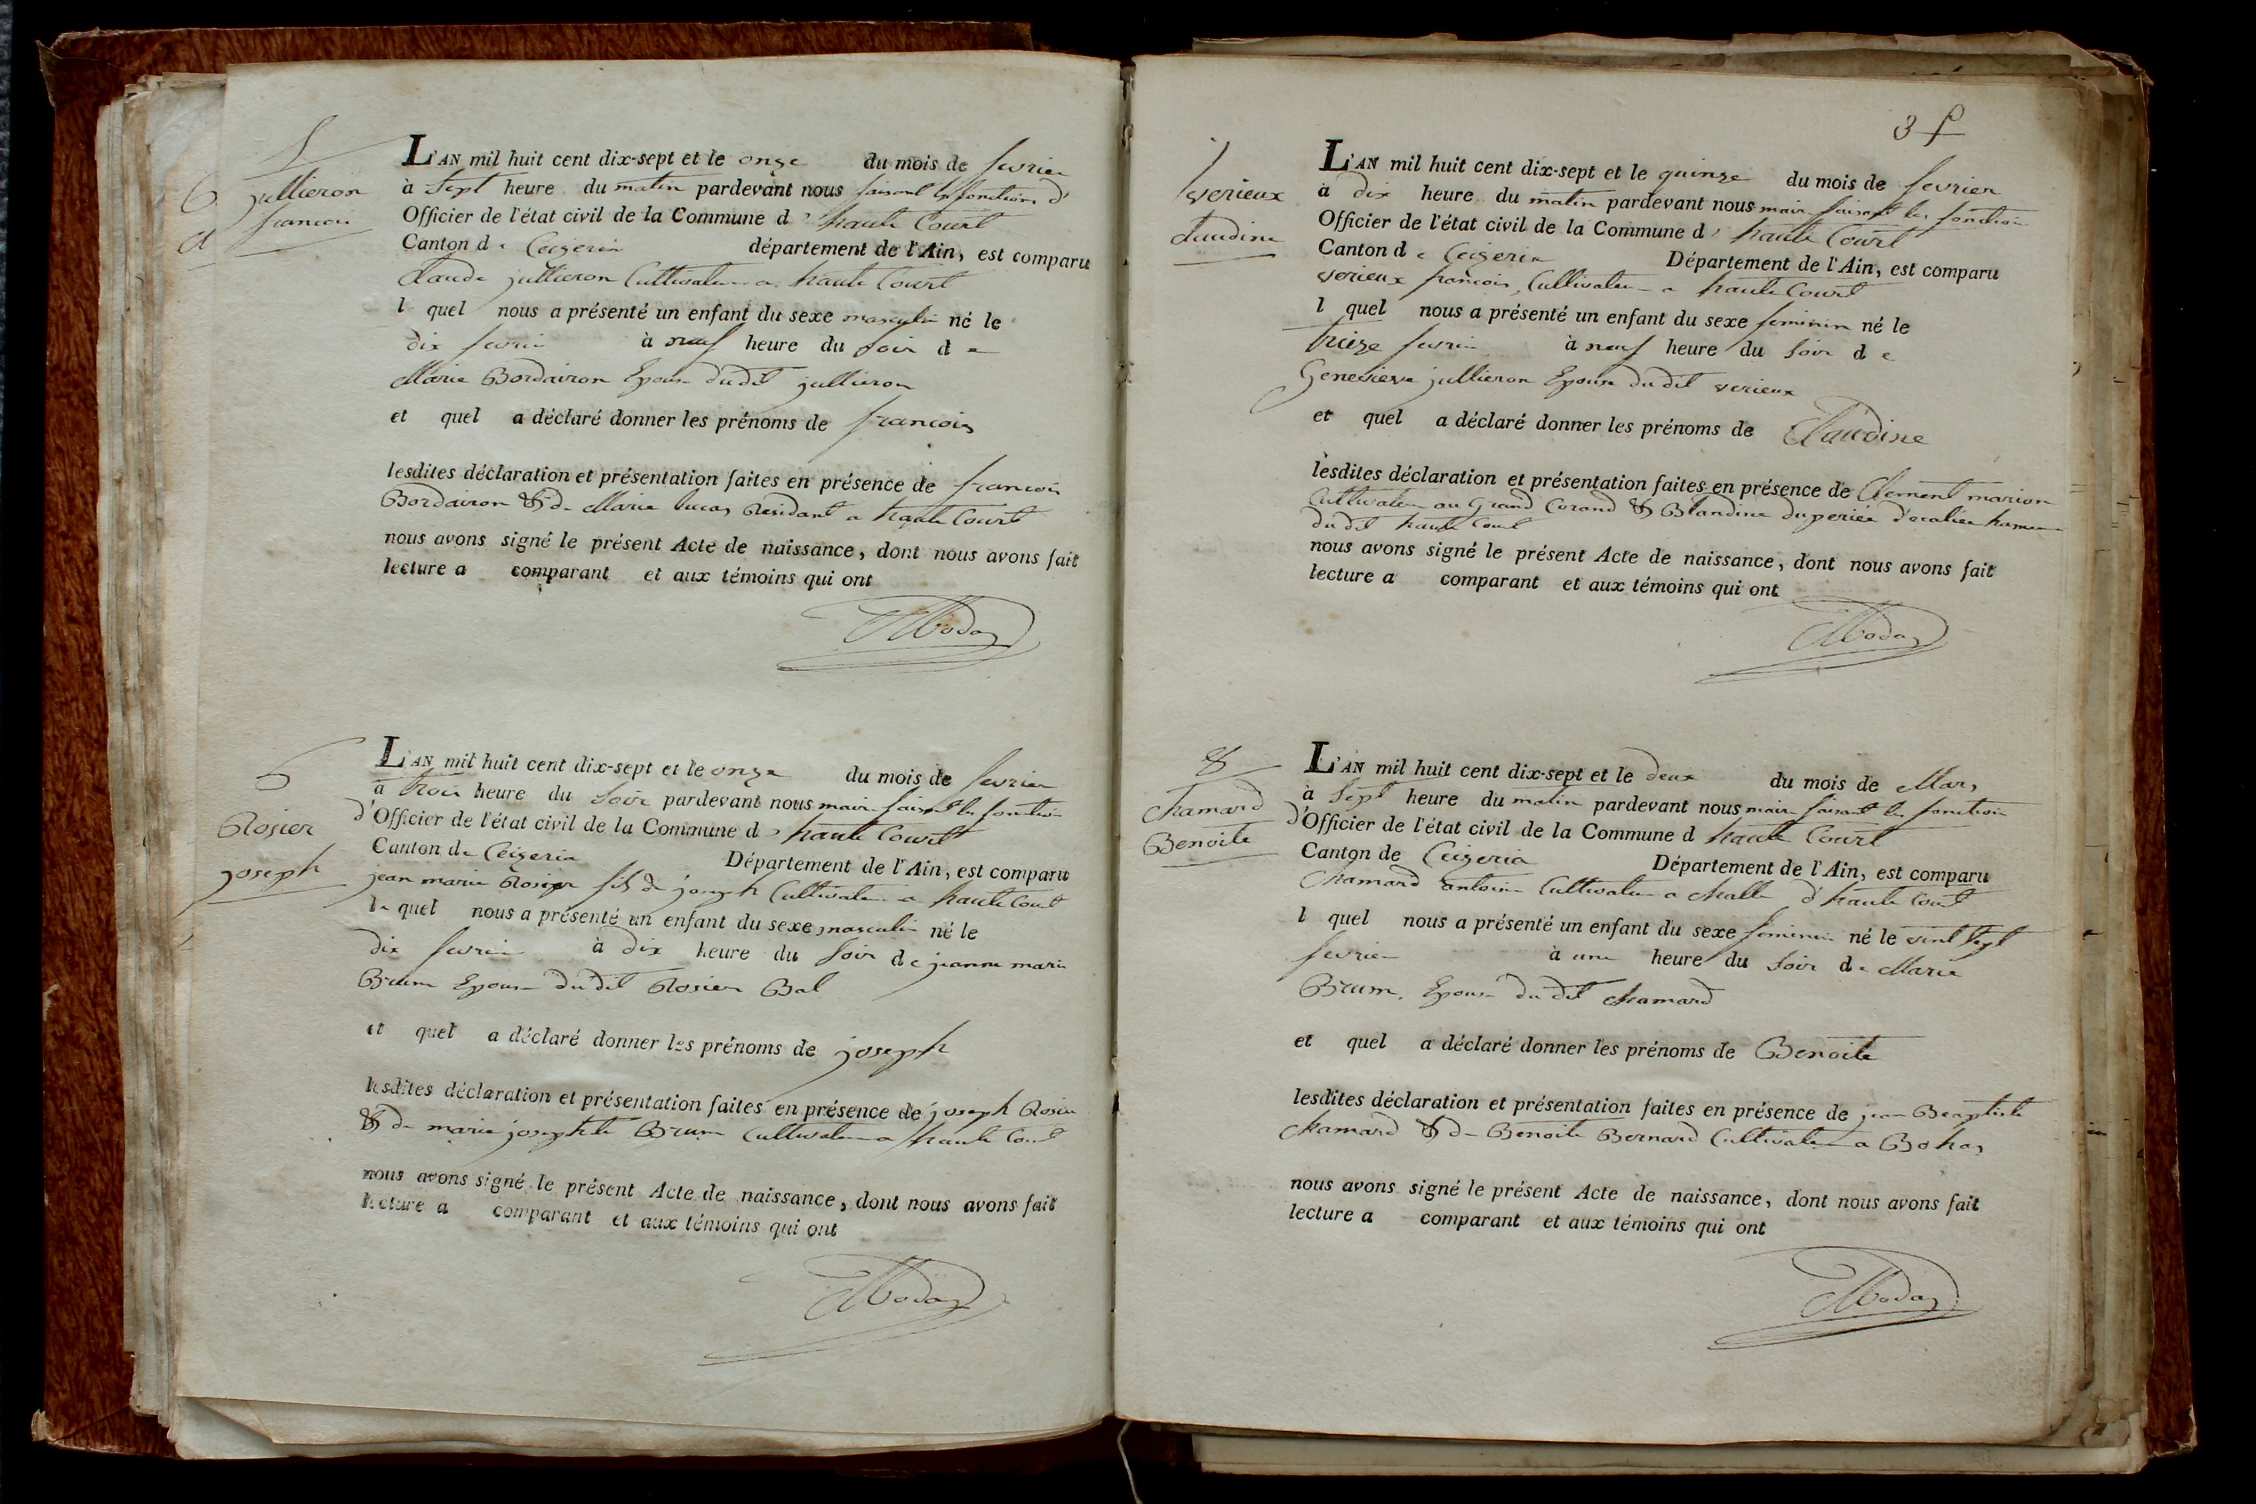 5
jullieron
francois
L'AN mil huit cent dix-sept et le onze du mois de fevrier
à Sept heure du matin pardevant nous faisant les fonctions d'
Officier de l'état civil de la Commune d haute Court
Canton de Ceizeria département de l'Ain, est comparu
Claude jullieron Cultivateur a haute Court
l quel nous a présenté un enfant du sexe masculin né le
dix fevrier à neuf heure du Soir de
Marie Bordairon Epouse dudit jullieron
et quel a déclaré donner les prénoms de francois
lesdites déclaration et présentation faites en présence de francois
Bordairon & de Marie lucas Residant a haute Court
nous avons signé le présent Acte de naissance, dont nous avons fait
lecture a comparant et aux témoins qui ont
6
Rosier
joseph
L'AN mil huit cent dix-sept et le onze du mois de fevrier
à trois heure du Soir pardevant nous maire faisant les fonction
d'Officier de l'état civil de la Commune d haute Court
Canton de Ceizeria Département de l'Ain, est comparu
jean marie Rosier fils de joseph Cultivateur a haute Court
le quel nous a présenté un enfant du sexe masculin né le
dix fevrier à dix heure du Soir de jeanne marie
Brum Epouse du dit Rosier Bal
et quel a déclaré donner les prénoms de joseph
lesdites déclaration et présentation faites en présence de joseph Rosier
& de marie josephte Brum Cultivateur a haute Court
nous avons signé le présent Acte de naissance, dont nous avons fait
lecture a comparant et aux témoins qui ont
3
7
verieux
Claudine
L'AN mil huit cent dix-sept et le quinze du mois de fevrier
à dix heure du matin pardevant nous maire faisant les fonction
Officier de l'état civil de la Commune d haute Court
Canton de Ceizeria Département de l'Ain, est comparu
verieux francois, Cultivateur a haute Court
l quel nous a présenté un enfant du sexe feminin né le
treize fevrier à neuf heure du Soir de
Genevieve jullieron Epouse du dit verieux
et quel a déclaré donner les prénoms de Claudine
lesdites déclaration et présentation faites en présence de Clement marion
Cultivateur au Grand Corand & Blandine duperier hameau
du dit haute Court
nous avons signé le présent Acte de naissance, dont nous avons fait
lecture a comparant et aux témoins qui ont
8
Chamard
Benoite
L'AN mil huit cent dix-sept et le deux du mois de Mars
à Sept heure du matin pardevant nous maire faisant les fonction
d'Officier de l'état civil de la Commune d haute Court
Canton de Ceizeria Département de l'Ain, est comparu
Chamard antoine Cultivateur a Challe d'haute Court
l quel nous a présenté un enfant du sexe feminin né le vint Sept
fevrier à une heure du Soir de Marie
Brum, Epouse du dit Chamard
et quel a déclaré donner les prénoms de Benoite
lesdites déclaration et présentation faites en présence de jean Beaptiste
Chamard & de Benoite Bernard Cultivateur a Bohas
nous avons signé le présent Acte de naissance, dont nous avons fait
lecture a comparant et aux témoins qui ont